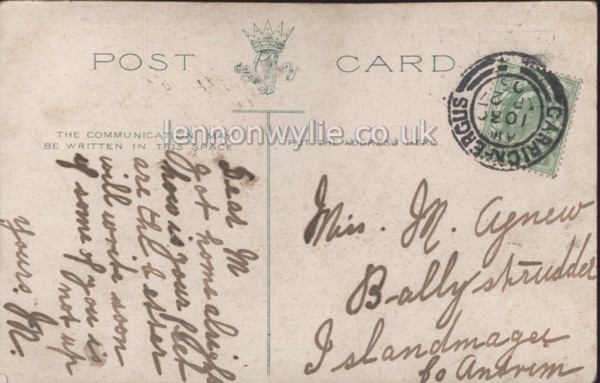 POST CARD
THE COMMUNICATION MAY
BE WRITTEN IN THIS SPACE
PUT THE ADDRESS HERE
lennonwylie.co.uk
CARRICKFERGUS
Dear M
got home alright
how is your feet
are the better
will write soon
if some of you is
not up
yours M.
Miss. M. Agnew
Ballystrudder
Islandmagee
Co Antrim